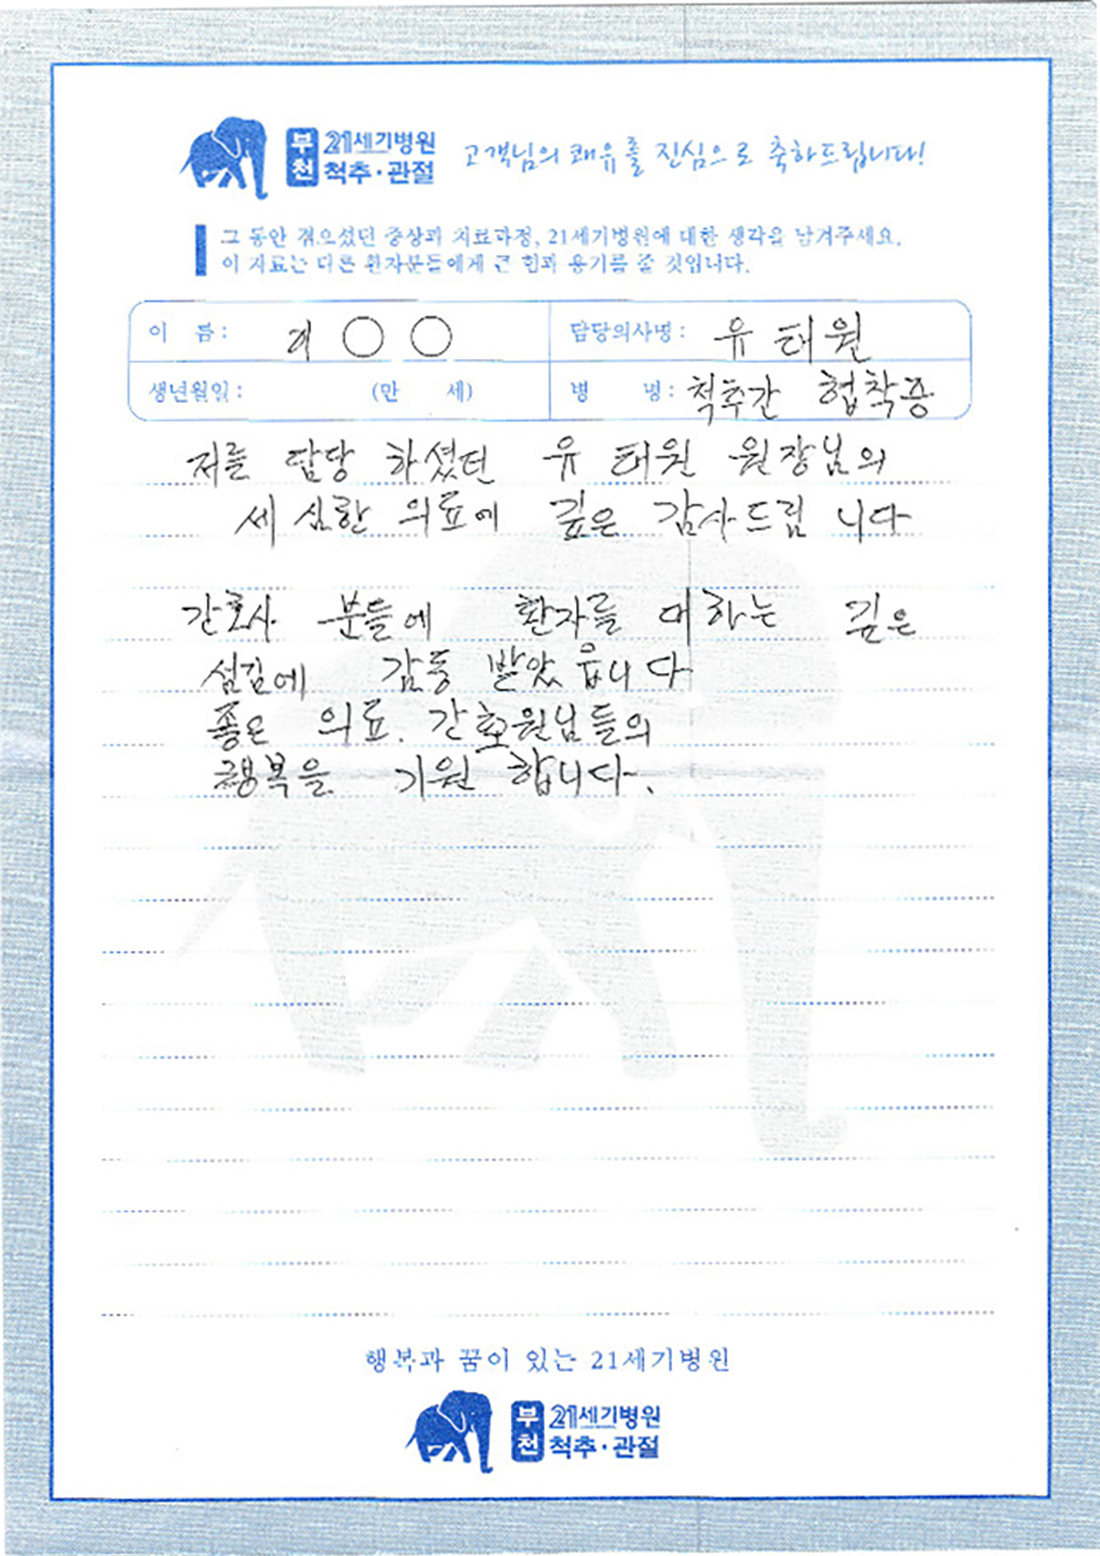 부천 21세기병원 척추·관절 고객님의 쾌유를 진심으로 축하드립니다!
그 동안 겪으셨던 증상과 치료과정, 21세기병원에 대한 생각을 남겨주세요.
이 자료는 다른 환자분들에게 큰 힘과 용기를 줄 것입니다.
이 름: ○ ○ 담당의사명: 유태원
생년월일: (만 세) 병 명: 척추간 협착증
저를 담당 하셨던 유태원 원장님의
세심한 의료에 깊은 감사드립 니다
간호사 분들에 환자를 대하는 깊은
섬김에 감동 받았읍니다
좋은 의료. 간호원님들의
행복을 기원 합니다.
행복과 꿈이 있는 21세기병원
부천 21세기병원 척추·관절